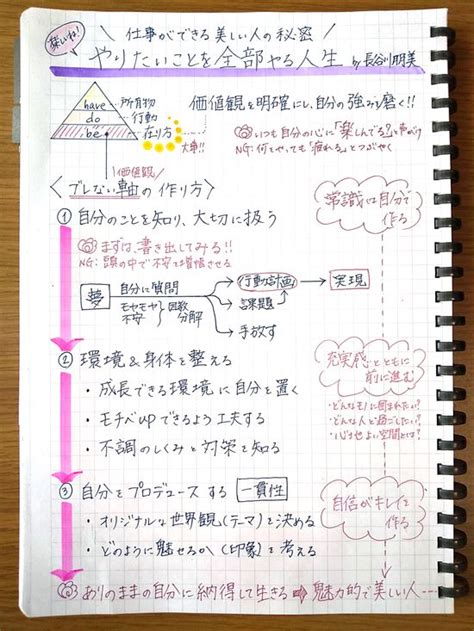 楽しいね!
\ 仕事ができる美しい人の秘密 /
やりたいことを全部やる人生 by 長谷川朋美
have 所有物
do 行動
be 在り方
大事!!
価値観を明確にし、自分の強みを磨く!!
いつも自分の心に「楽しんでる?」と声がけ
NG: 何をやっても「疲れる」とつぶやく
価値観
〈ブレない軸の作り方〉
常識は自分で作る
① 自分のことを知り、大切に扱う
まずは、書き出してみる!!
NG: 頭の中で不安を増幅させる
夢 自分に質問 → 行動計画 → 実現
モヤモヤ 不安 因数分解 → 課題
→ 手放す
② 環境&身体を整える
充実感とともに前に進む
・成長できる環境に自分を置く
・どんなモノに囲まれたい?
・モチベupできるよう工夫する
・どんな人と過ごしたい?
・不調のしくみと対策を知る
・心地よい空間とは?
③ 自分をプロデュースする 一貫性
自信がキレイを作る
・オリジナルな世界観(テーマ)を決める
・どのように魅せるか(印象)を考える
ありのままの自分に納得して生きる ⇒ 魅力的で美しい人…